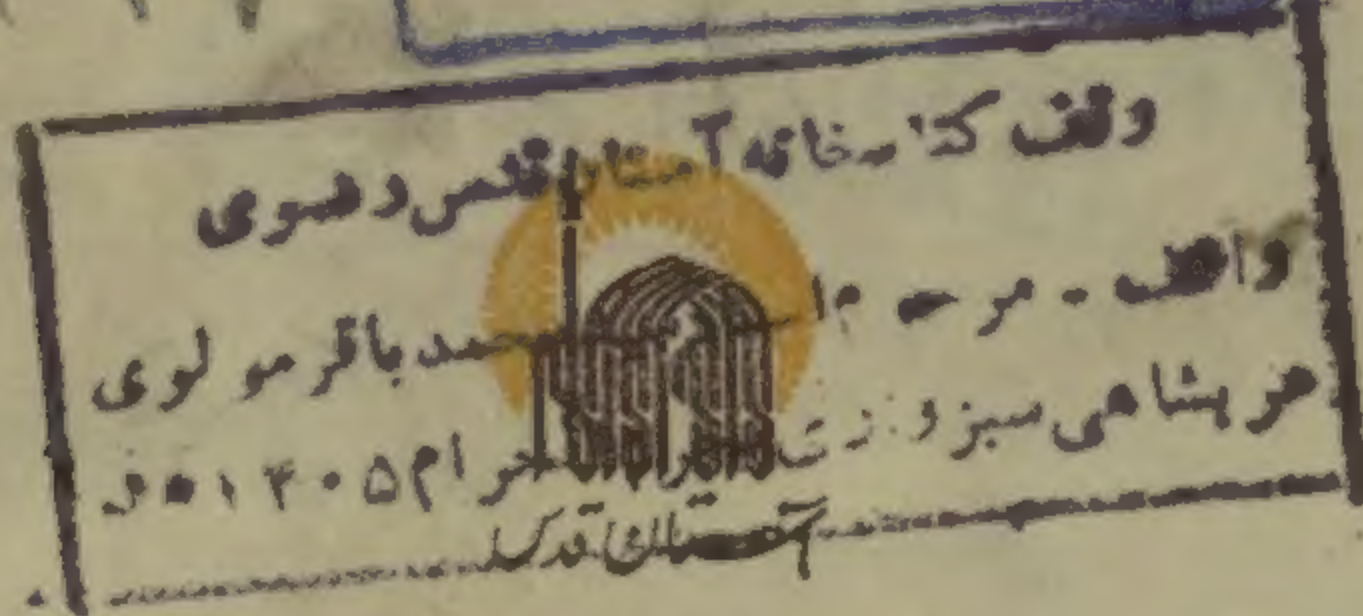 وقف کتابخانه آستان قدس رضوی
واقف - مرحوم محمد باقر مولوی
عربشاهی سبزواری الحرام ۱۴۰۵
آستان قدس